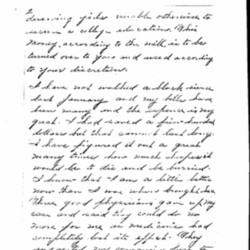 2
deserving girls unable otherwise to
secure a college education. This
money, according to the will, is to be
turned over to you and used according
to your discretion.
I have not walked a block since
last January and my bills have
been many and the expense is very
great. I had saved a few hundred
dollars but that cannot last long.
I have figured it out a great
many times how much cheaper it
would be to die and be buried.
I know that I am a little better
now than I was when brought here.
Three good physicians gave up my
case and said they could do no
more for me as medicine had
completely lost its effect. They